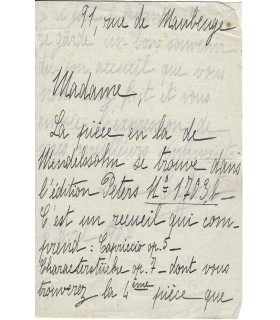 91, rue de Maubeuge
Madame,
La pièce en la de
Mendelssohn se trouve dans
l'édition Peters No 1703,b_
C'est un recueil qui com-
prend : Capriccio op. 5 _
Characterstücke op. 7 _ dont vous
trouverez la 4ème pièce que